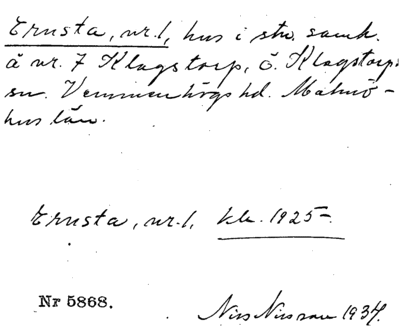 Ernsta, nr. 1, hus i stn. samh.
å nr. 7 Klagstorp, ö. Klagstorps
sn. Vemmenhögs hd. Malmö-
hus län.
Ernsta, nr. 1, kh. 1925-.
Nr 5868.
Nils Nilsson 1934.